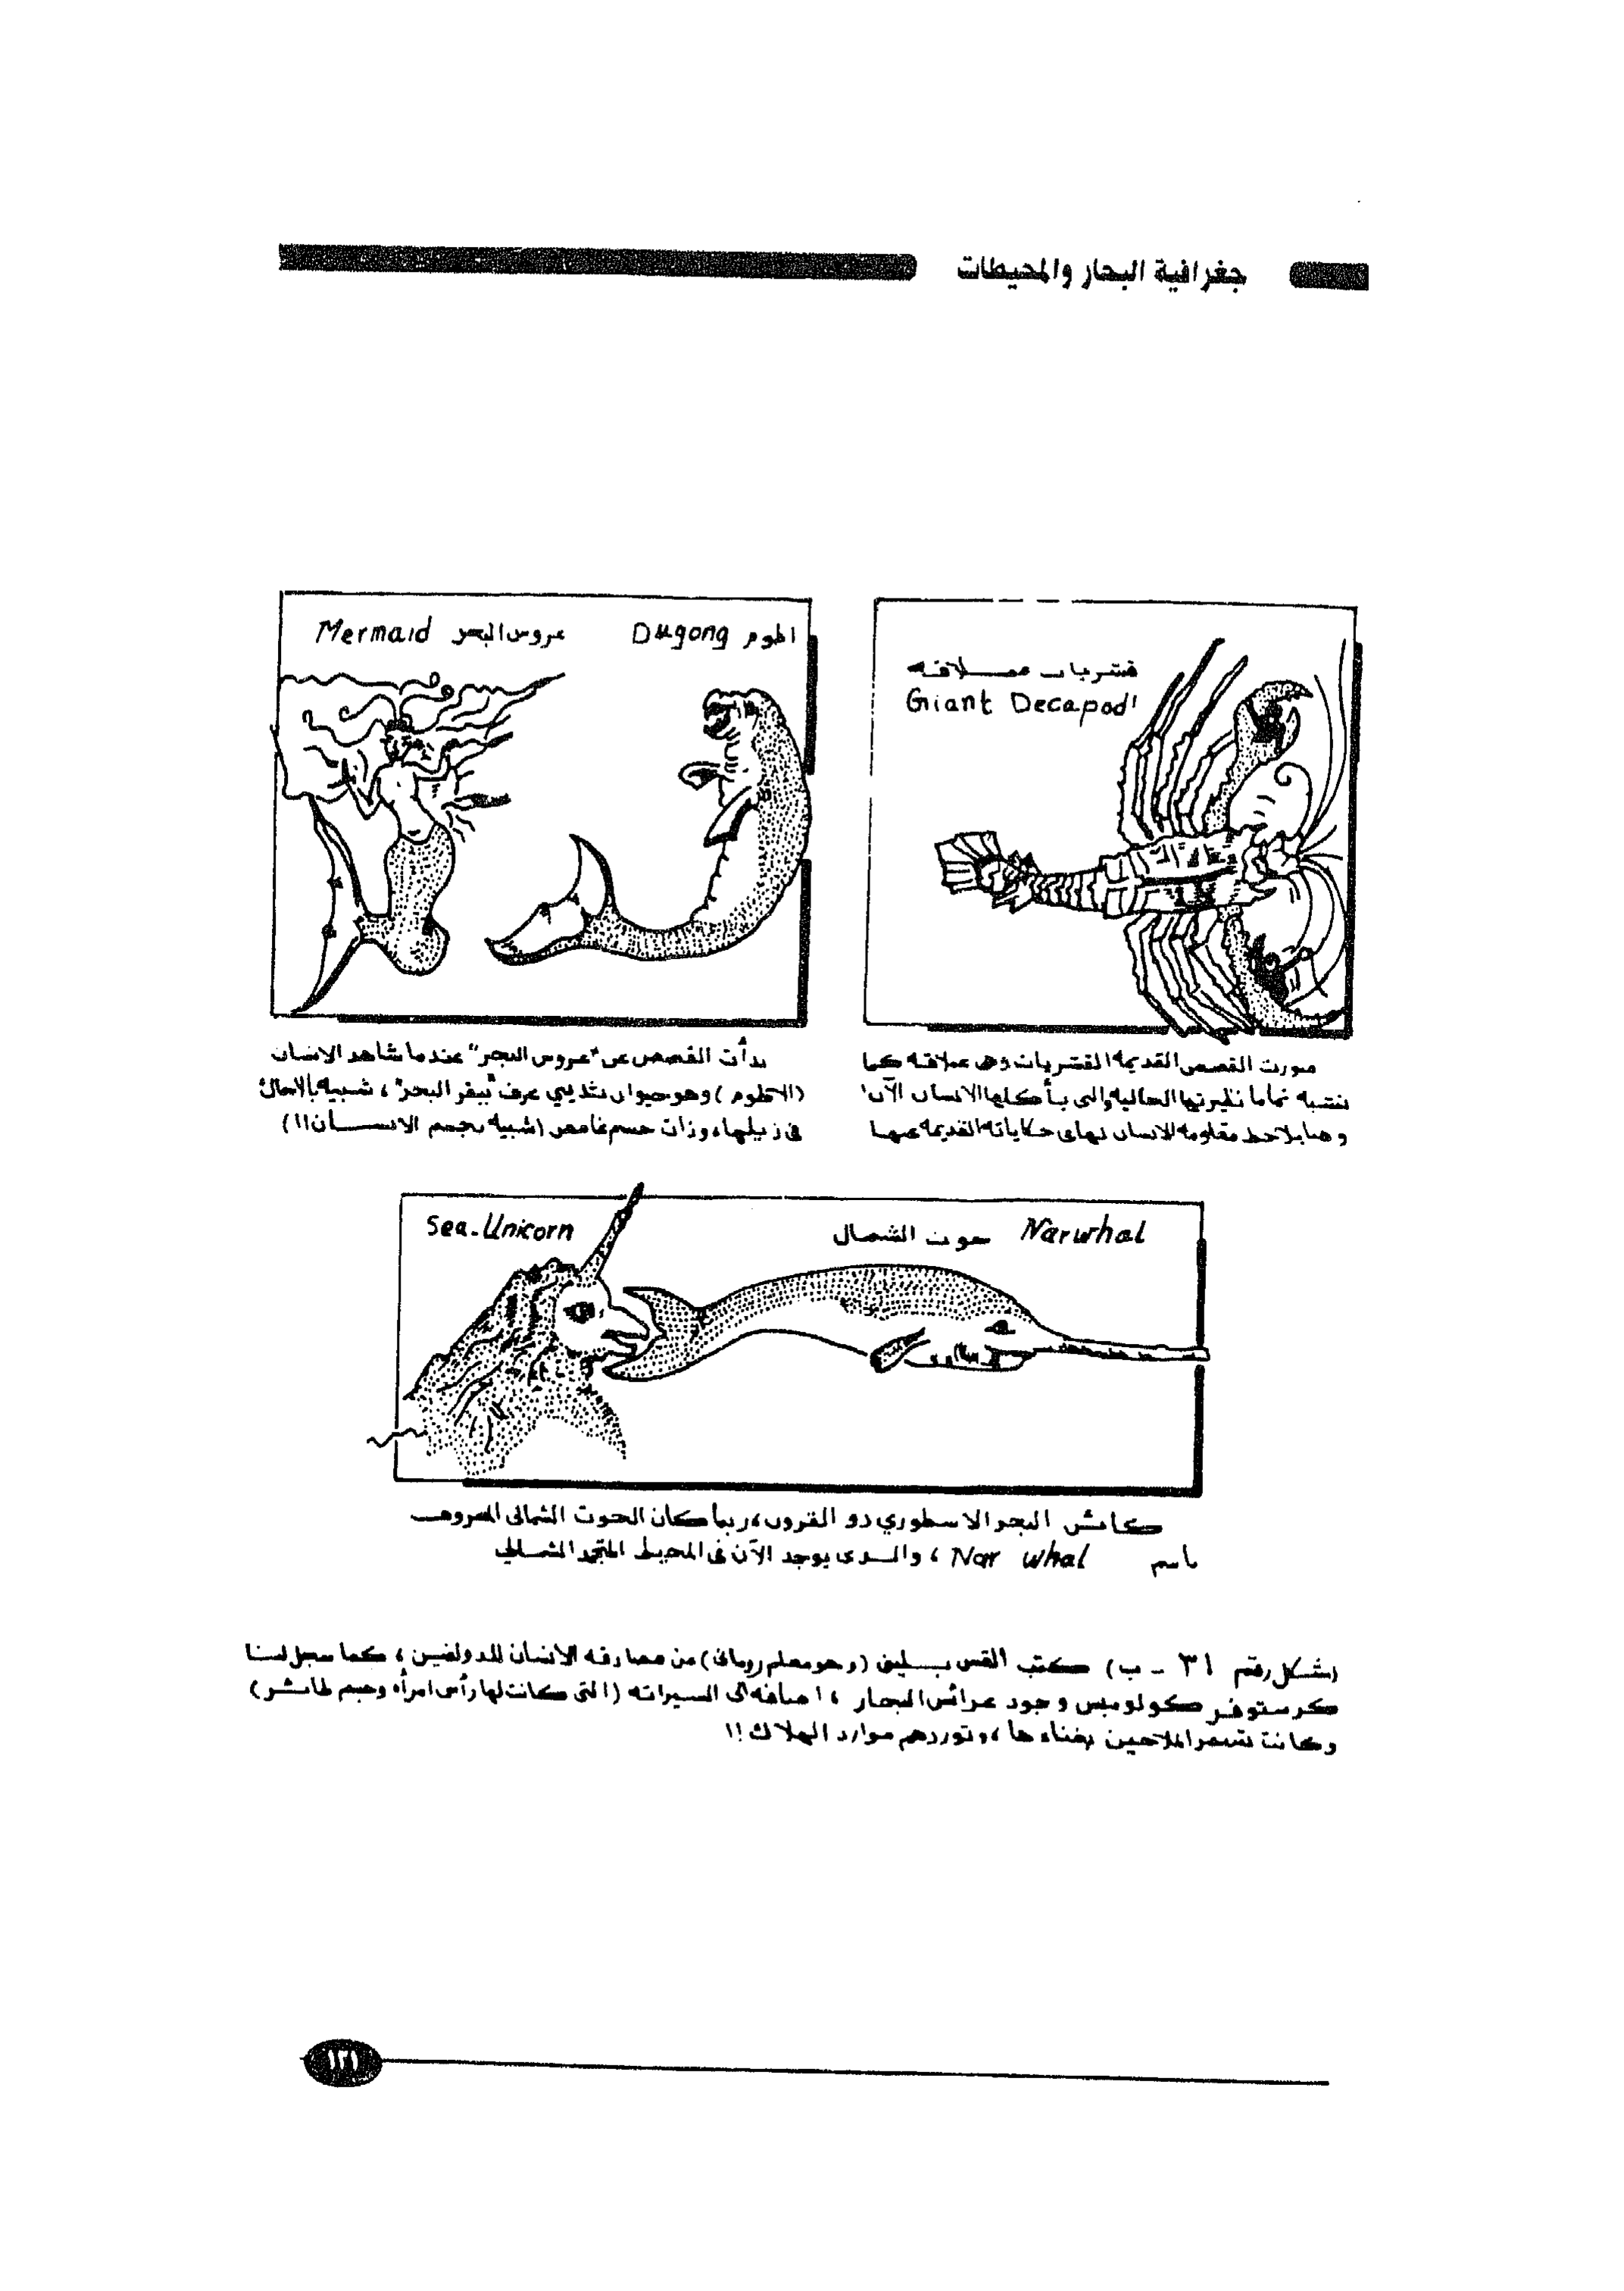 جغرافية البحار والمحيطات
قشريات عملاقه
Giant Decapod
Mermaid عروس البحر Dugong اطوم
صورت القصص القديمه القشريات وهى عملاقه كما
تشبه تماما نظيرتها الحاليه والتى يأكلها الانسان الآن
وهنا يلاحظ مقاومه الانسان لها فى حكاياته القديمه عنها
بدأت القصص عن "عروس البحر" عندما شاهد الانسان
(الاطوم) وهو حيوان ثديي عرف "ببقر البحر"، شبيه بالاسماك
فى زيلها، وذات جسم غامض (شبيه بجسم الانسان!!)
Sea-Unicorn حوت الشمال Narwhal
كائن البحر الاسطوري ذو القرون، ربما كان الحوت الشمالى المعروف
باسم Nar whal ، والذى يوجد الآن فى المحيط المتجمد الشمالي
(شكل رقم ٣١ - ب) كتب القس بلينى (وهو معلم رومانى) عن مصادقه الانسان للدولفين، كما سجل لنا
كرستوفر كولومبس وجود عرائس البحار، اضافه الى السيرانه (التى كانت لها رأس امرأه وجسم طائر)
وكانت تسحر الملاحين بغناءها، وتوردهم موارد الهلاك!!
١٢١